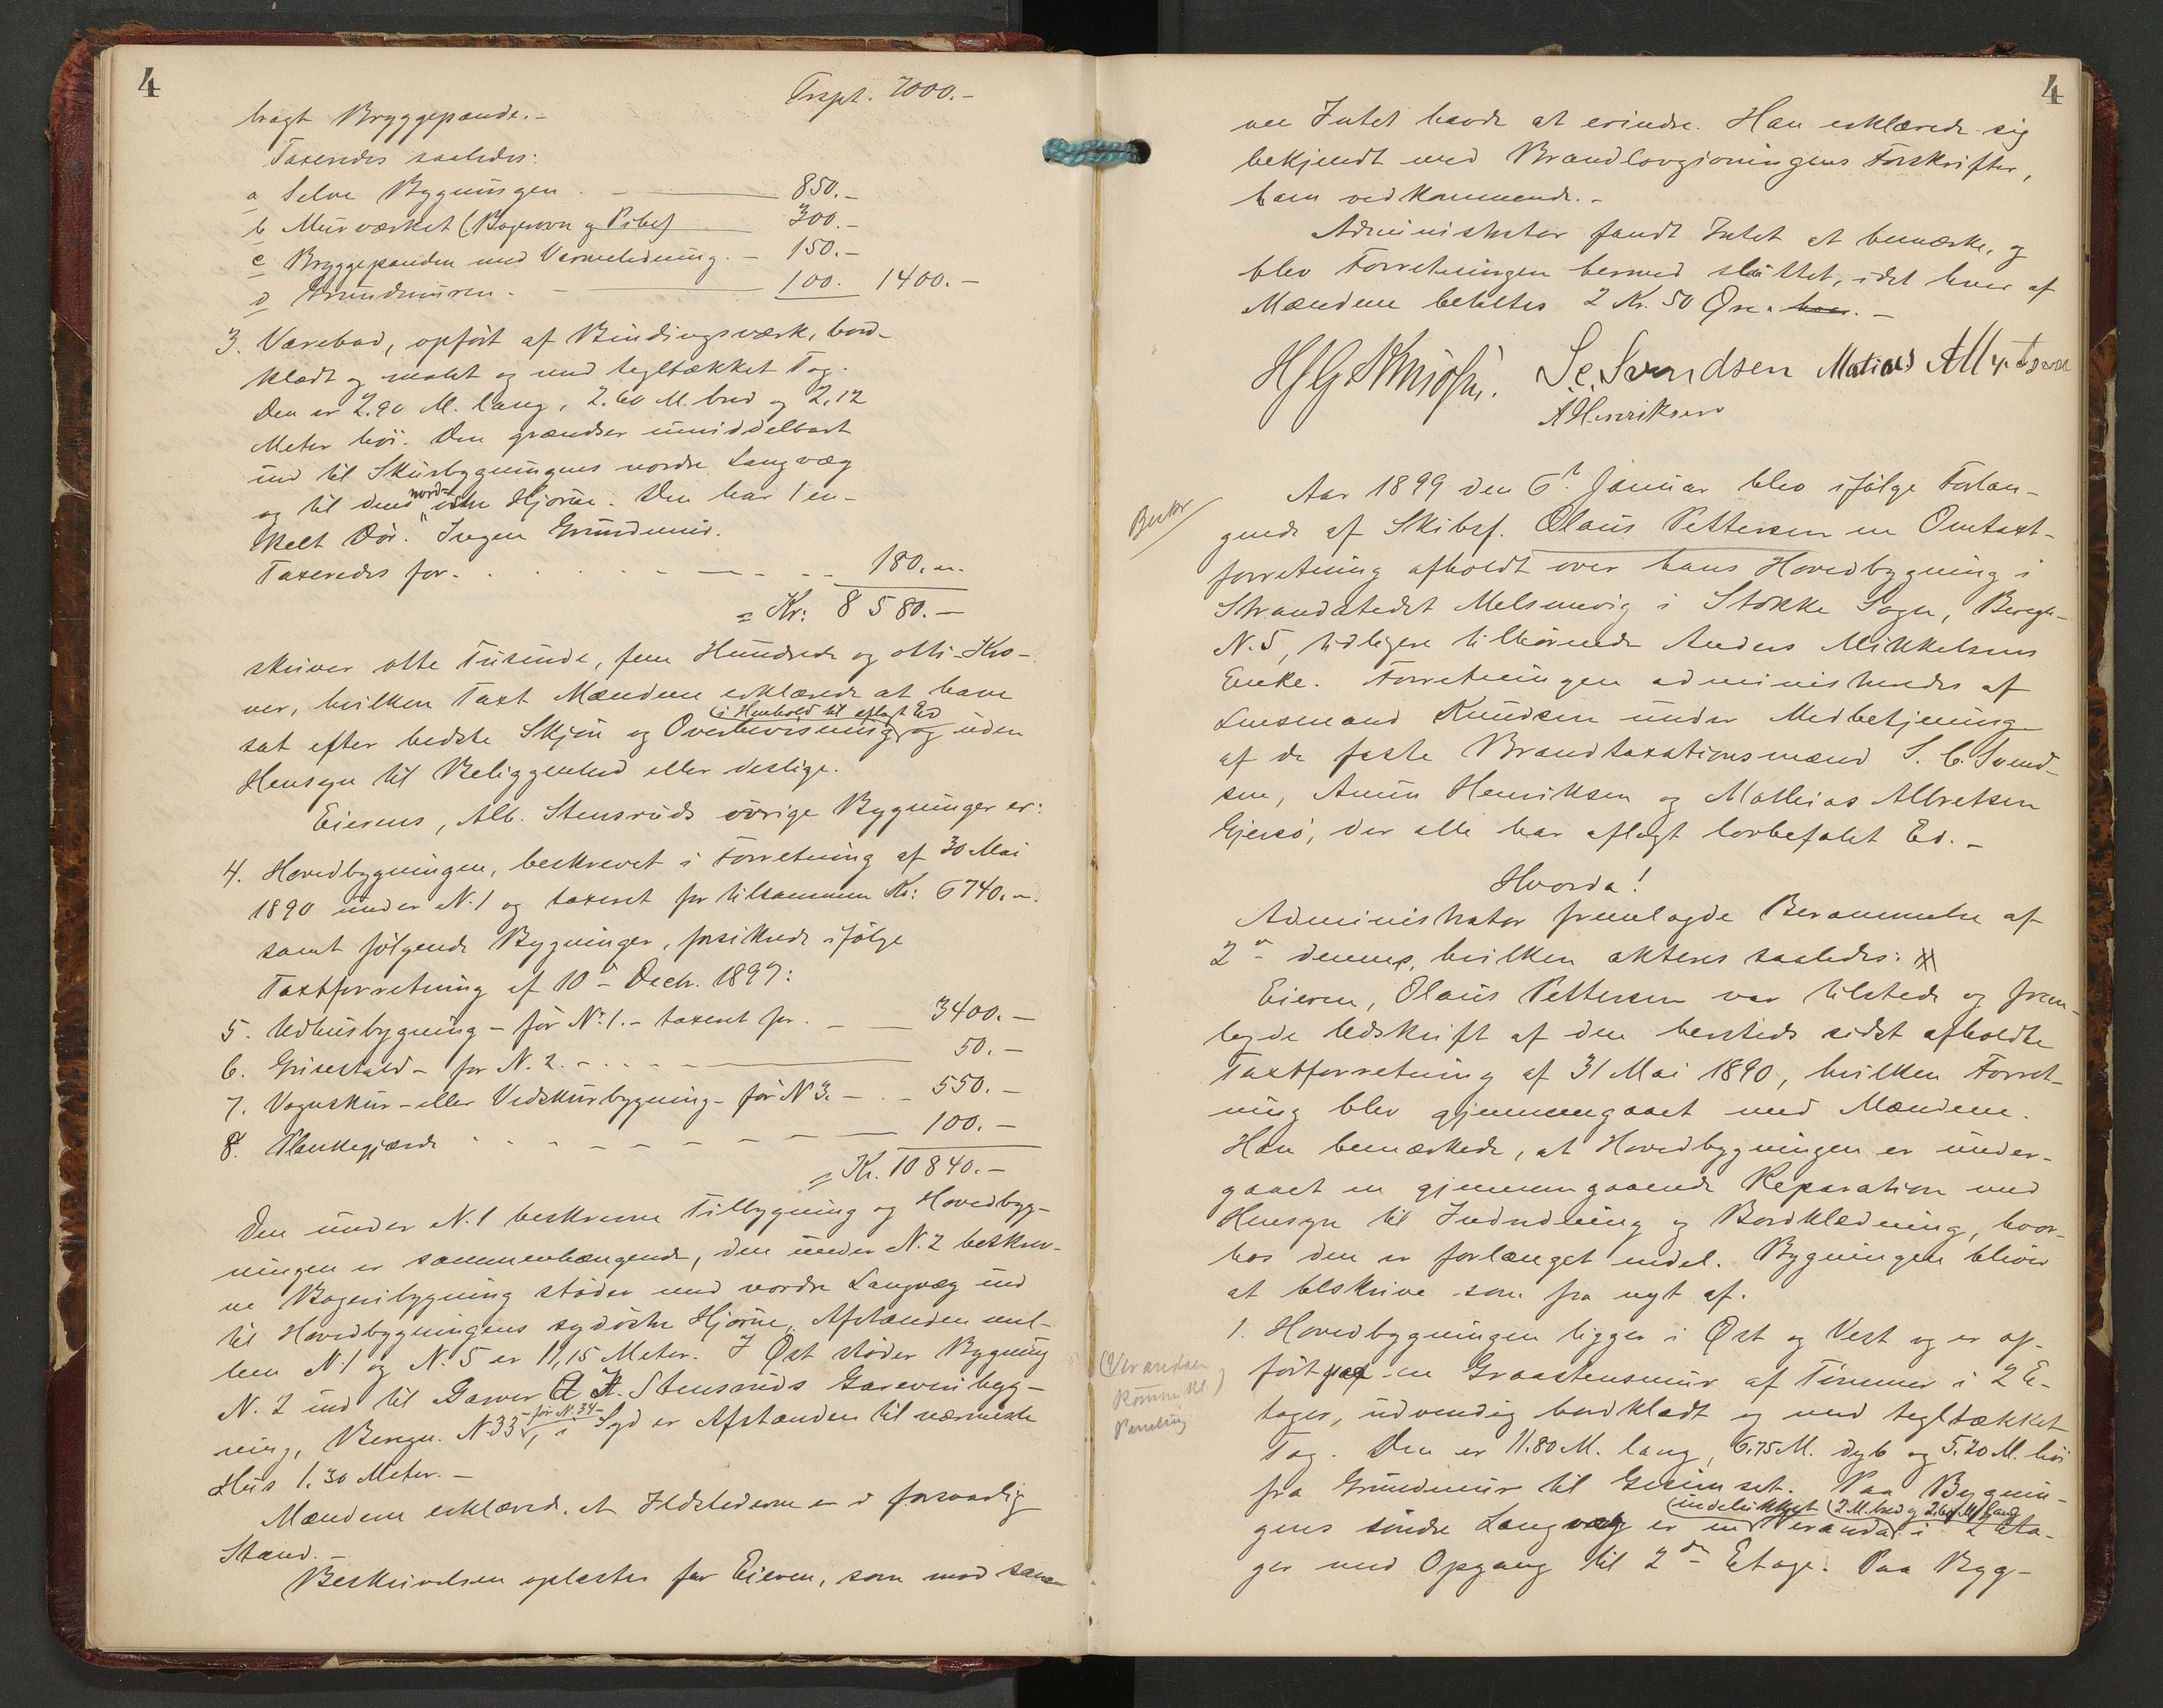 4
Trspt. 7000.-
bragt Bryggepande.-
Taxeredes saaledes:
a Selve Bygningen . - 850.-
b Murværket (Bagerovn og Pibe) 300.-
c Bryggepanden med Varmeledning. - 150.-
d Grundmuren. - 100. 1400.-
3. Varebod, opført af Bindingsværk, bord-
klædt og malet og med tegltækket Tag.
Den er 2.90 M. lang, 2.60 M. bred og 2,12
Meter høi. Den grændser umiddelbart
ind til Skursbygningens nordre Langvæg
og til dens nord-østre Hjørne. Den har 1 en-
kelt Dør. Ingen Grundmur.
Taxeredes for. 180.-
= Kr: 8580.-
skriver otte Tusinde, fem Hundrede og otti Kro-
ner, hvilken Taxt Mændene erklærede at have
sat efter bedste Skjøn og Overbevisning (i Henhold til aflagt Ed) og uden
Hensyn til Beliggenhed eller deslige.
Eierens, Alb. Stensruds øvrige Bygninger er:
4. Hovedbygningen, beskrevet i Forretning af 30 Mai
1890 under N. 1 og taxeret for tilsammen Kr: 6740.-
samt følgende Bygninger, forsikrede ifølge
Taxtforretning af 10 - Decbr. 1897:
5. Udhusbygning - før N. 1. - taxeret for. - 3400.-
6. Grisestald - før N. 2. - 50.-
7. Vognskur- eller Vedskurbygning - før N 3. - 550.-
8. Plankegjærde - 100.-
= Kr. 10840.-
Den under N. 1 beskrevne Tilbygning og Hovedbyg-
ningen er sammenhængende, den under N. 2 beskrev-
ne Bageribygning støder med nordre Langvæg ind
til Hovedbygningens sydøstre Hjørne. Afstanden mel-
lem N. 1 og N. 5 er 11,15 Meter. I Øst støder Bygning
N. 2 ind til Garver A. H. Stensruds Garveribyg-
ning, Beregn. N 33 - før N. 34 -, i Syd er Afstanden til nærmeste
Hus 1.30 Meter. -
Mændene erklærede, at Ildstederne er i forsvarlig
Stand. -
Beskrivelsen oplæstes for Eieren, som mod sam-
4
me Intet havde at erindre. Han erklærede sig
bekjendt med Brandlovgivningens Forskrifter,
ham vedkommende. -
Administrator fandt Intet at bemærke, og
blev Forretningen hermed sluttet, idet hver af
Mændene betaltes 2 Kr. 50 Øre. -
S. C. Svendsen Matias Albretsen
A Henriksen
Aar 1899 den 6t Januar blev ifølge Forlan-
gende af Skibsf. Olaus Pettersen en Omtaxt-
forretning afholdt over hans Hovedbygning i
Strandstedet Melsomvig i Stokke Sogn, Beregn.
N. 5, tidligere tilhørende Anders Mikkelsens
Enke. Forretningen administreredes af
Lensmand Knudsen under Medbetjening
af de faste Brandtaxationsmænd S. C. Svend-
sen, Amun Henriksen og Mathias Albretsen
Gjersø, der alle har aflagt lovbefalet Ed. -
Hvorda!
Administrator fremlagde Berammelse af
2 - dennes, hvilken akteres saaledes:
Eieren, Olaus Pettersen var tilstede og frem-
lagde Udskrift af den hersteds sidst afholdte
Taxtforretning af 31 Mai 1890, hvilken Forret-
ning blev gjennemgaaet med Mændene.
Han bemærkede, at Hovedbygningen er under-
gaaet en gjennemgaaende Reparation med
Hensyn til Inddeling og Bordklædning, hvor-
hos den er forlænget endel. Bygningen bliver
at beskrive som fra nyt af.
1. Hovedbygningen ligger i Øst og Vest og er op-
ført paa en Graastensmur af Tømmer i 2 E-
tager, udvendig bordklædt og med tegltækket
Tag. Den er 11.80 M. lang, 6.75 M. dyb og 5.20 M. høi
fra Grundmur til Gesimset. Paa Bygnin-
gens søndre Langvæg er en (indelukket Veranda (2 M. bred og 2.60 M lang i 2 Eta-
ger med Opgang til 2den Etage. Paa Byg-
(Verandaen